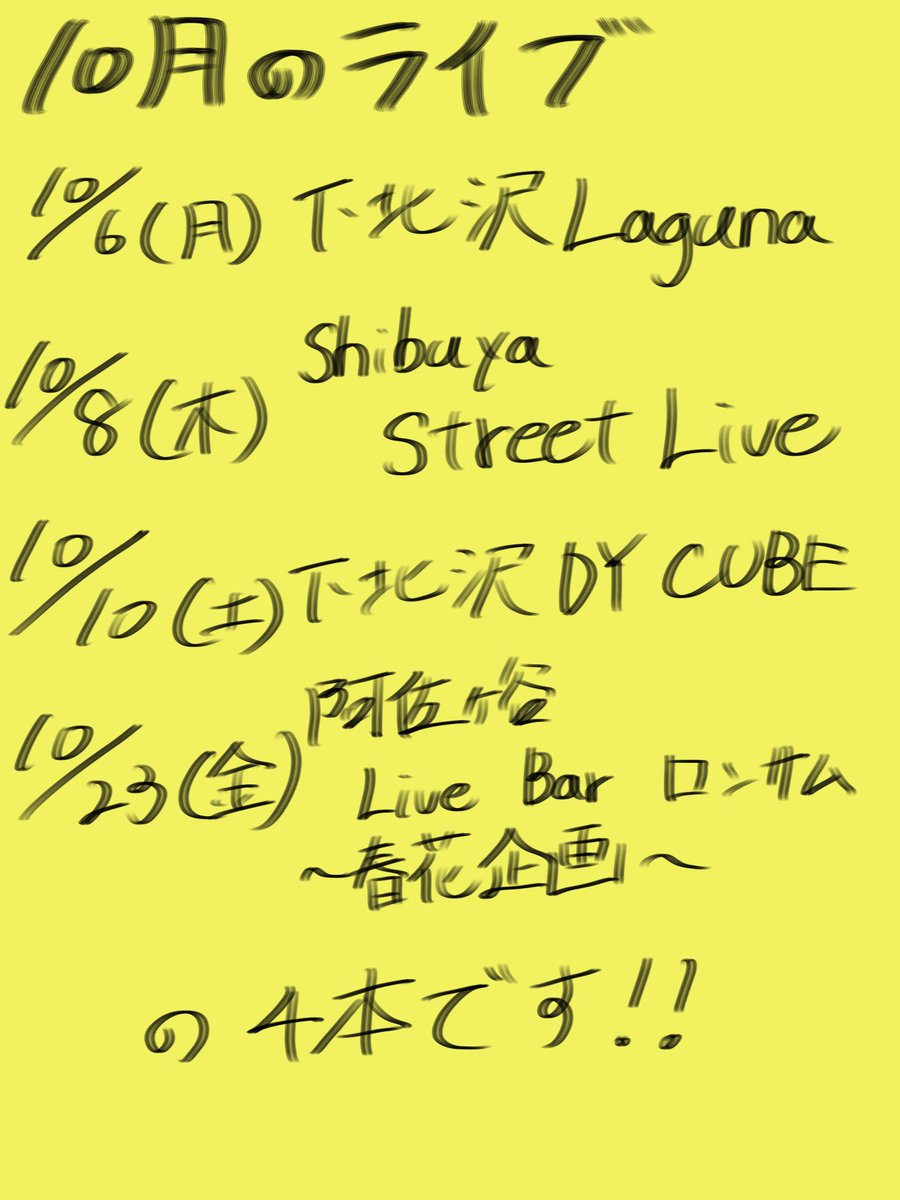 10月のライブ
10/6(月) 下北沢Laguna
10/8(木) Shibuya
Street Live
10/10(土) 下北沢 DY CUBE
10/23(金) 阿佐ヶ谷
Live Bar ロンサム
~春花企画~
の4本です!!